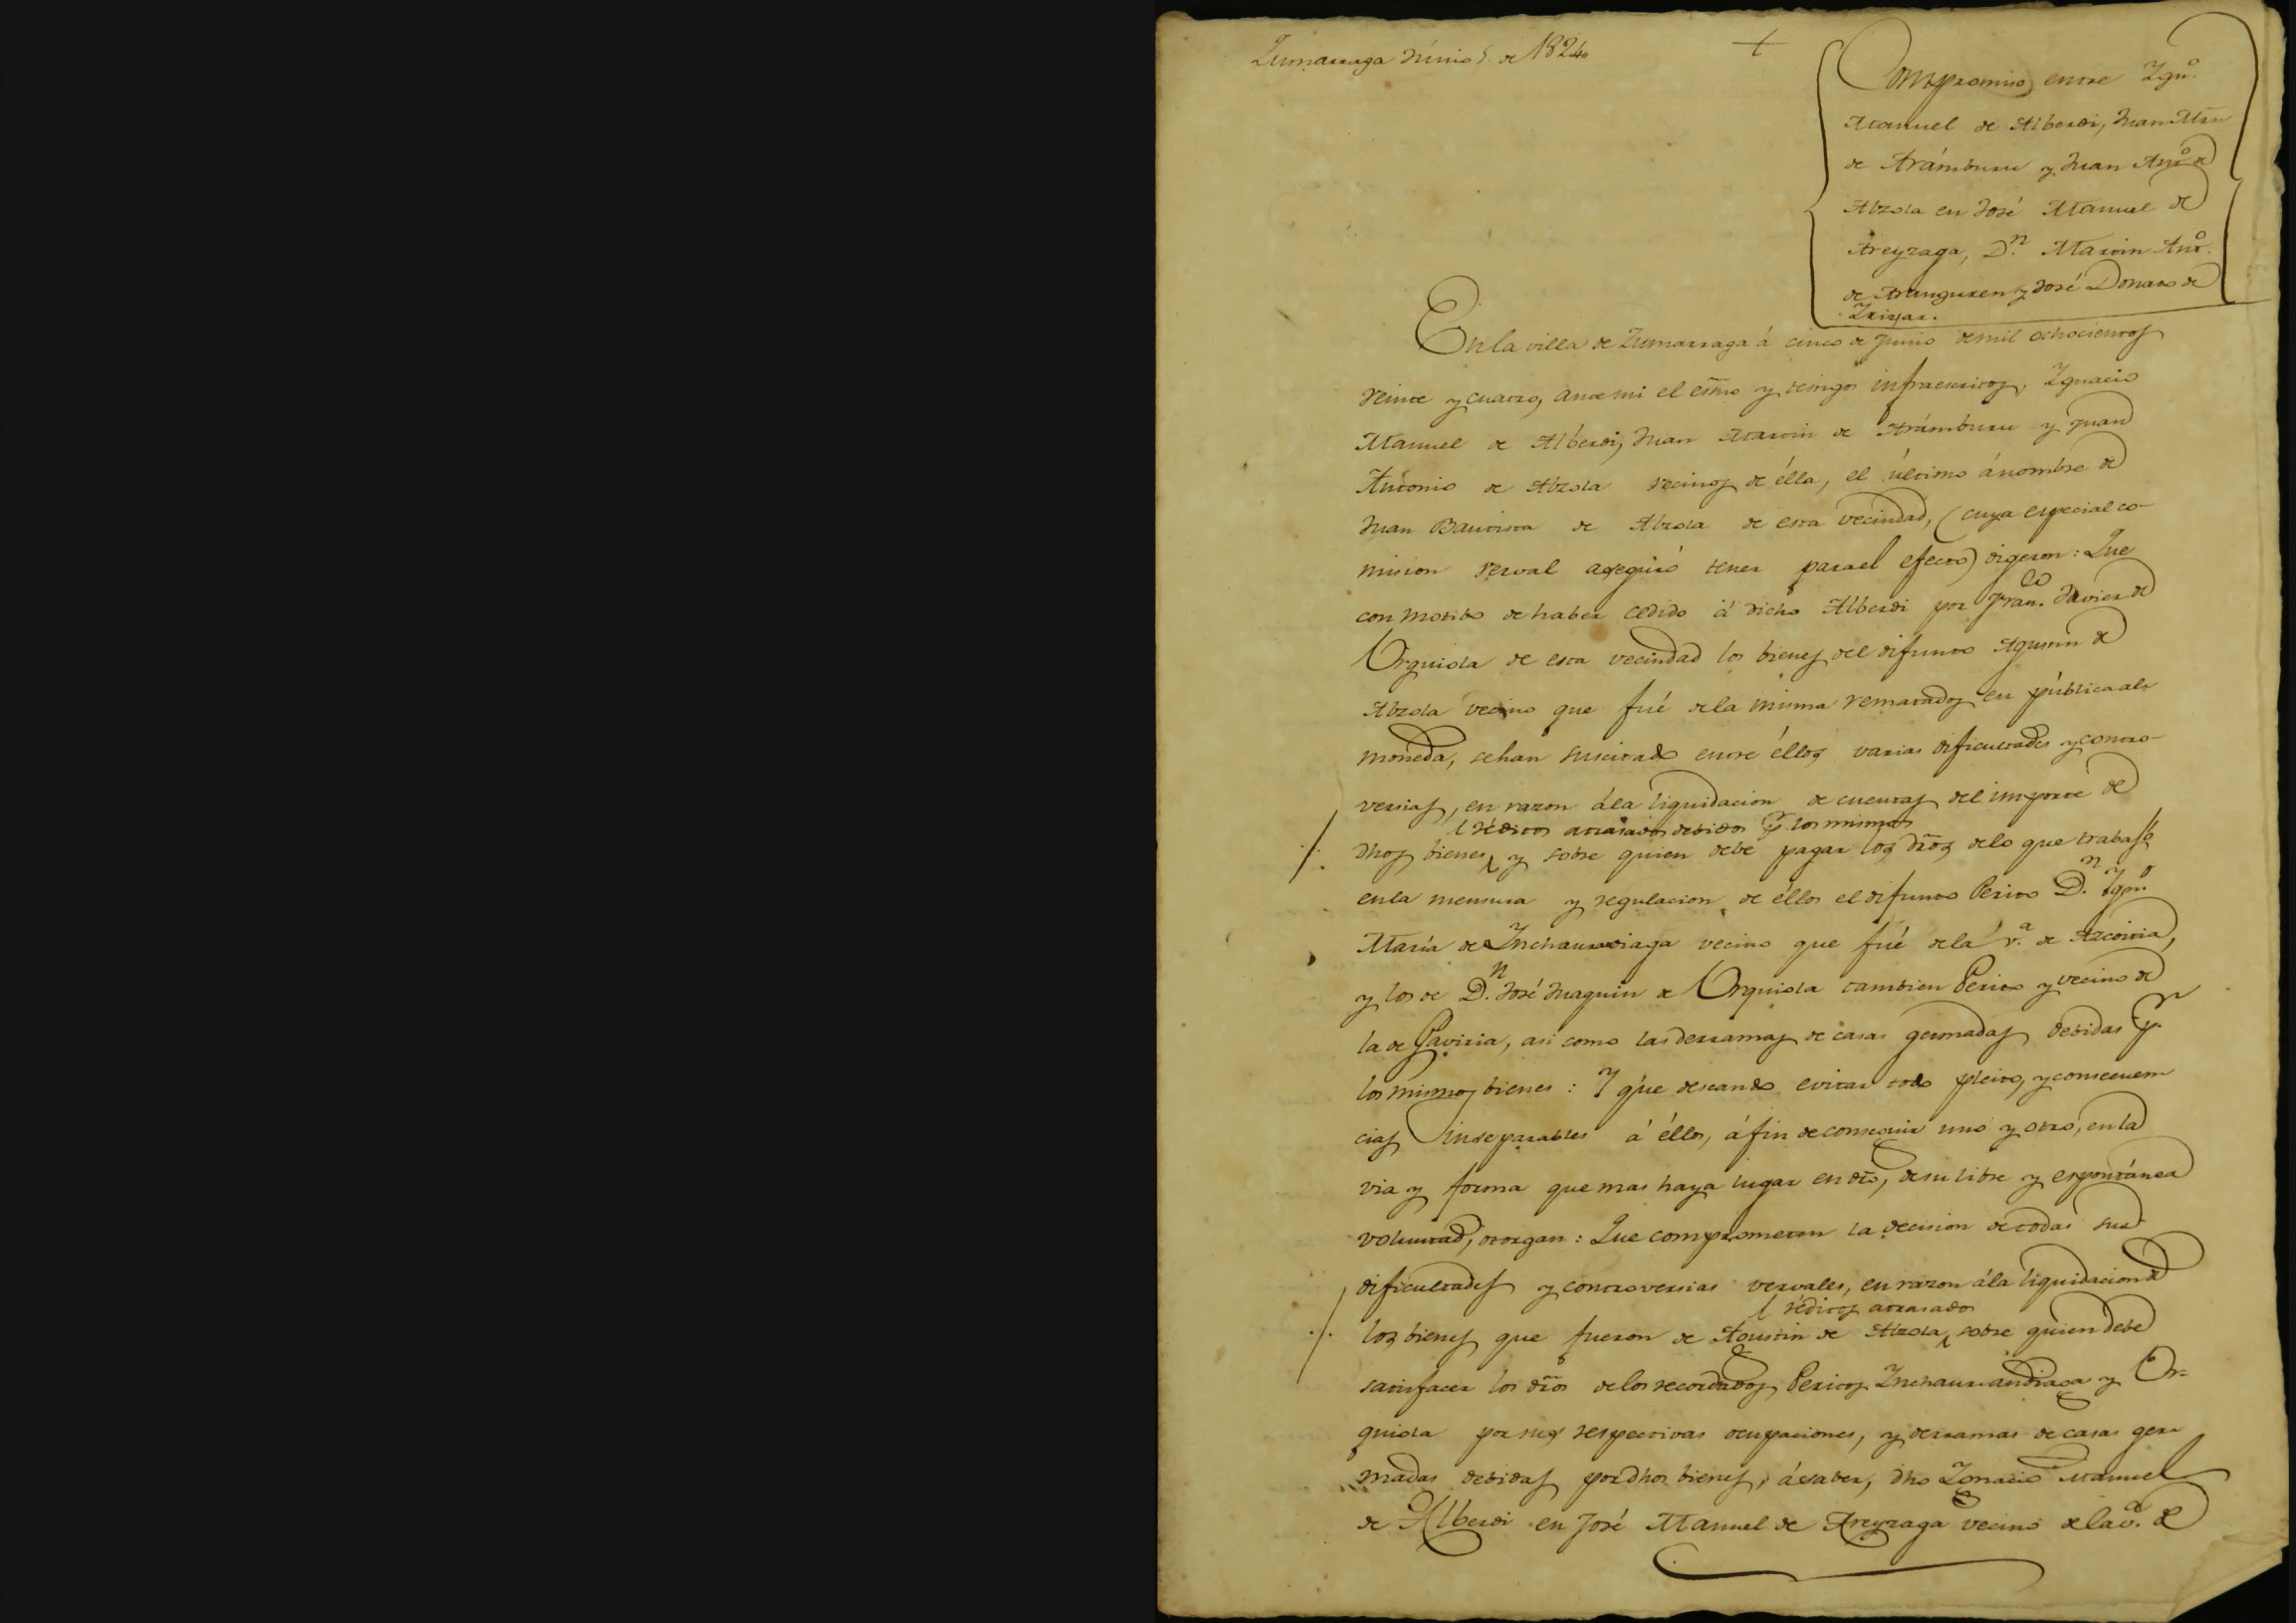 Zumarraga Junio 5. de 1824
+
Compromiso entre Ygn.º
Manuel de Alberdi, Juan Mrn
de Arámburu y Juan Ant.º de
Alzola en José Manuel de
Areyzaga, D.n Martin Ant.º
de Aranguren y José Donato de
Yrizar.
En la villa de Zumarraga á cinco de Junio de mil ochocientos
veinte y cuatro, ante mi el esno y testigos infraescritos, Ygnacio
Manuel de Alberdi, Juan Martin de Arámburu y Juan
Antonio de Alzola vecinos de élla, el último á nombre de
Juan Bautista de Alzola de esta vecindad, (cuya especial co-
mision verval aseguró tener para el efecto) digeron: Que
con motibo de haber cedido á dicho Alberdi por Fran.co Javier de
Urquiola de esta vecindad los bienes del difunto Agustin de
Alzola vecino que fué de la misma rematados en pública al-
moneda, se han suscitado entre éllos varias dificultades y contro-
versias, en razon á la liquidacion de cuentas del importe de
réditos atrasados debidos p.r los mismos
dhos bienes y sobre quien debe pagar los dros de lo que trabajó
en la mensura y regulacion de éllos el difunto Perito D.n Ygn.º
María de Ynchaurandiaga vecino que fué de la v.a de Azcoitia,
y los de D.n José Juaquin de Urquiola tambien Perito y vecino de
la de Gaviria, asi como las derramas de casas germadas debidas p.r
los mismos bienes: Y que deseando evitar todo pleito, y consecuen
cias inseparables á éllos, á fin de conseguir uno y otro, en la
via y forma que mas haya lugar en dro, de su libre y espontánea
voluntad, otorgan: Que comprometen la decision de todas sus
dificultades y controversias vervales, en razon á la liquidacion de
réditos atrasados
los bienes que fueron de Agustin de Alzola, sobre quien debe
satisfacer los dros de los recordados Peritos Ynchaurandiaga y Ur-
quiola por sus respectivas ocupaciones, y derramas de casas ger
madas debidas por dhos bienes, á saber, dho Ygnacio Manuel
de Alberdi en José Manuel de Areyzaga vecino de la v.a de